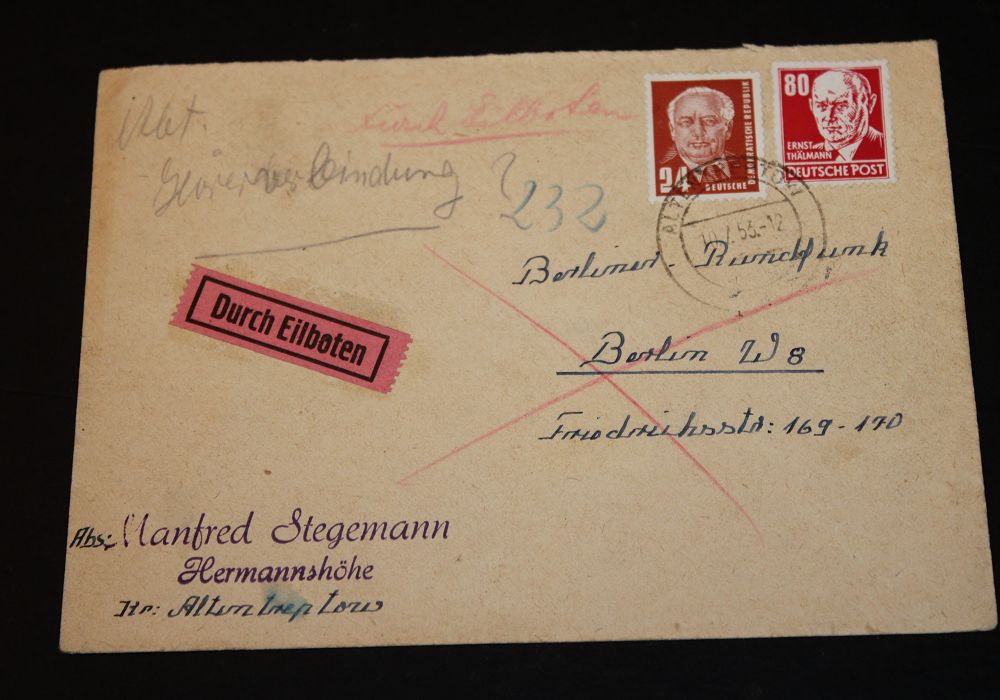 Abt.
Hörerverbindung
durch Eilboten
232
24
DEUTSCHE
DEMOKRATISCHE REPUBLIK
80
ERNST
THÄLMANN
DEUTSCHE POST
ALTENTREPTOW
53.-12
Berliner Rundfunk
Durch Eilboten
Berlin W 8
Friedrichsstr: 169-170
Abs: Manfred Stegemann
Hermannshöhe
Kr: Altentreptow